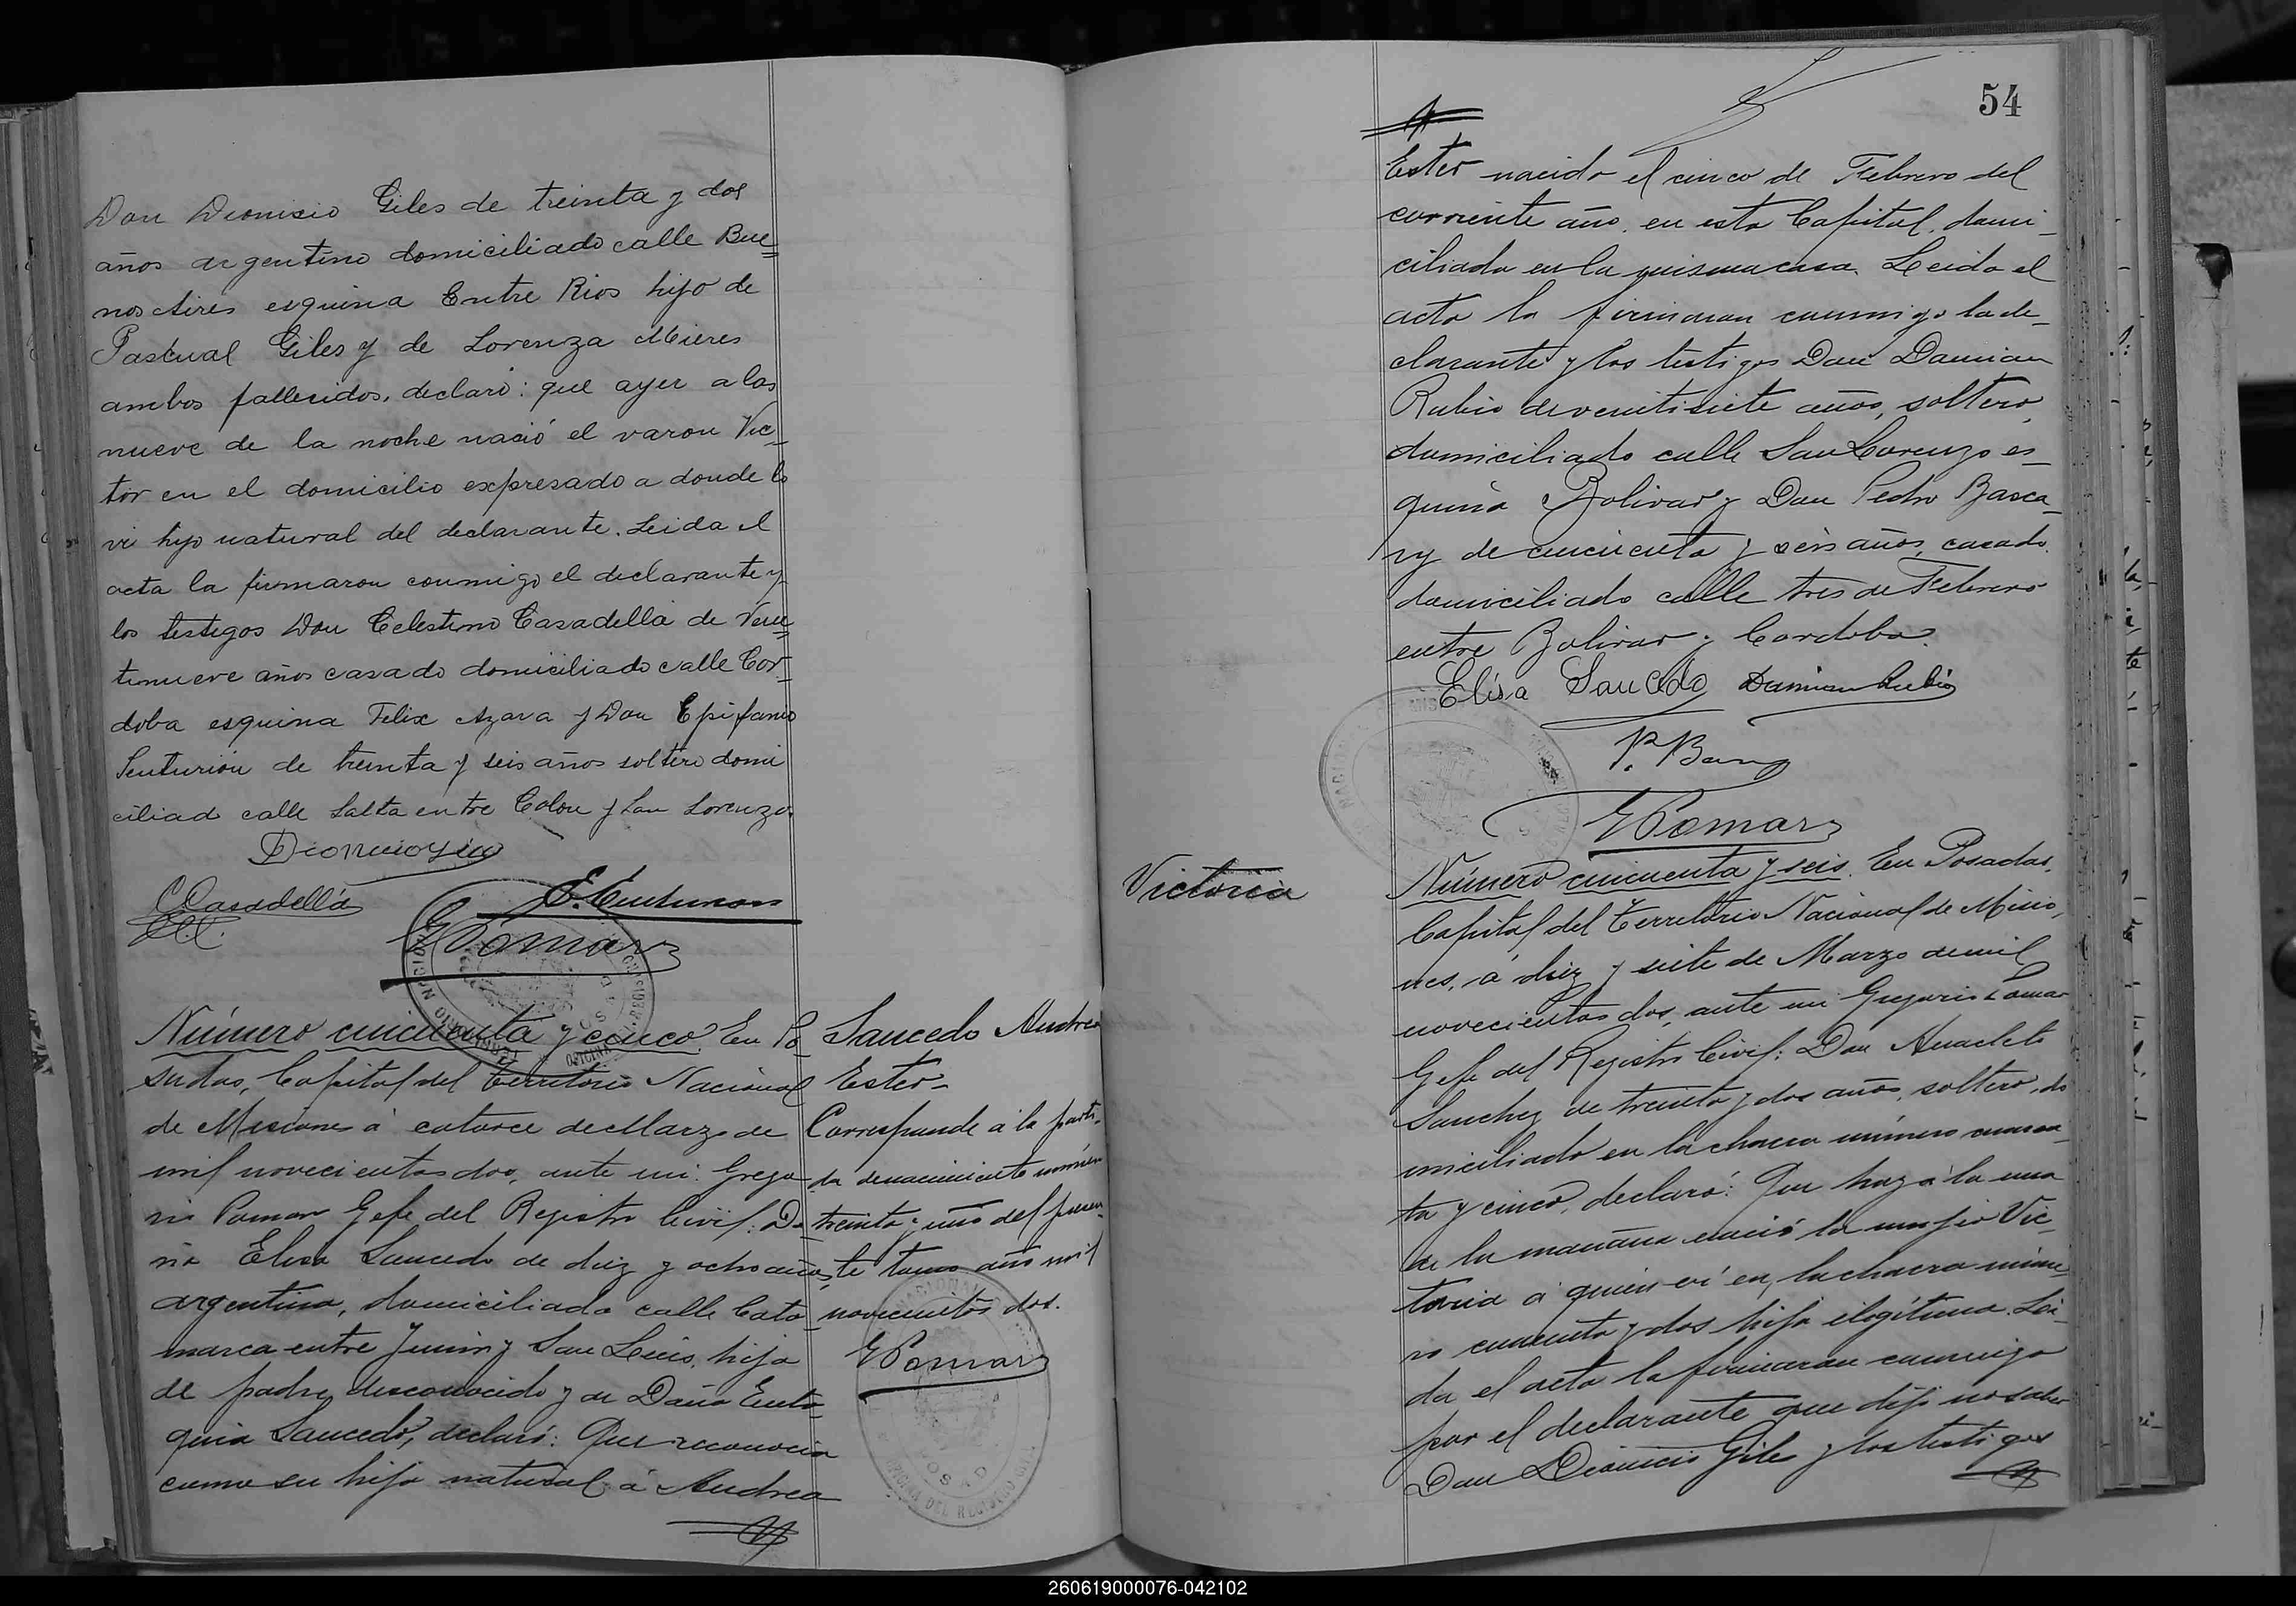 Don Dionisio Giles de treinta y dos
años argentino domiciliado calle Bue=
nos Aires esquina Entre Rios hijo de
Pascual Giles y de Lorenza Mieres
ambos fallecidos, declaró: que ayer a las
nueve de la noche nació el varon Vic_
tor en el domicilio expresado a donde lo
vi hijo natural del declarante. Leida el
acta la firmaron conmigo el declarante y
los testigos Don Celestino Casadellá de Vein=
tinueve años casado domiciliado calle Cor_
doba esquina Felix Azara y Don Epifanio
Senturión de treinta y seis años soltero domi
ciliad calle Salta entre Colon y San Lorenzo.
C. Casadellá
E. Centurion
GPomar
Número cincuenta y cinco. En Po_
sadas, Capital del Territorio Nacional
de Misiones á catorce de Marzo de
mil novecientos dos, ante mi: Grego_
rio Pomar Gefe del Registro Civil: Do_
ña Elisa Saucedo de diez y ocho años,
argentina, domiciliada calle Cata_
marca entre Junin y San Luis, hija
de padre desconocido y de Doña Eusta_
quia Saucedo, declaró: Que reconocia
como su hija natural á Andrea
Saucedo Andrea
Ester_
Corresponde á la parti_
da de nacimiento número
treinta y uno del presen_
te tomo año mil
novecientos dos.
GPomar
54
Ester nacida el cinco de Febrero del
corriente año, en esta Capital, domi_
ciliada en la misma casa. Leida el
acta la firmaron conmigo la de_
clarante y los testigos Don Damian
Rubio de veintisiete años, soltero,
domiciliado calle San Lorenzo es_
quina Bolivar y Don Pedro Basca_
ry de cincuenta y seis años, casado,
domiciliado calle tres de Febrero
entre Bolivar y Cordoba.
Elisa Saucedo Damian Rubio
GPomar
Victoria
Número cincuenta y seis. En Posadas,
Capital del Territorio Nacional de Misio_
nes, á diez y siete de Marzo de mil
novecientos dos, ante mi: Gregorio Pomar
Gefe del Registro Civil: Don Anacleto
Sanchez de treinta y dos años, soltero, do
miciliado en la chacra número cuaren_
ta y cinco, declaró: Que hoy á la una
de la mañana nació la mujer Vic_
toria á quien vi en la chacra núme_
ro cuarenta y dos hija ilegitima. Lei_
da el acta la firmaron conmigo
por el declarante que dijo no saber
Don Dionicio Giles y los testigos
260619000076-042102